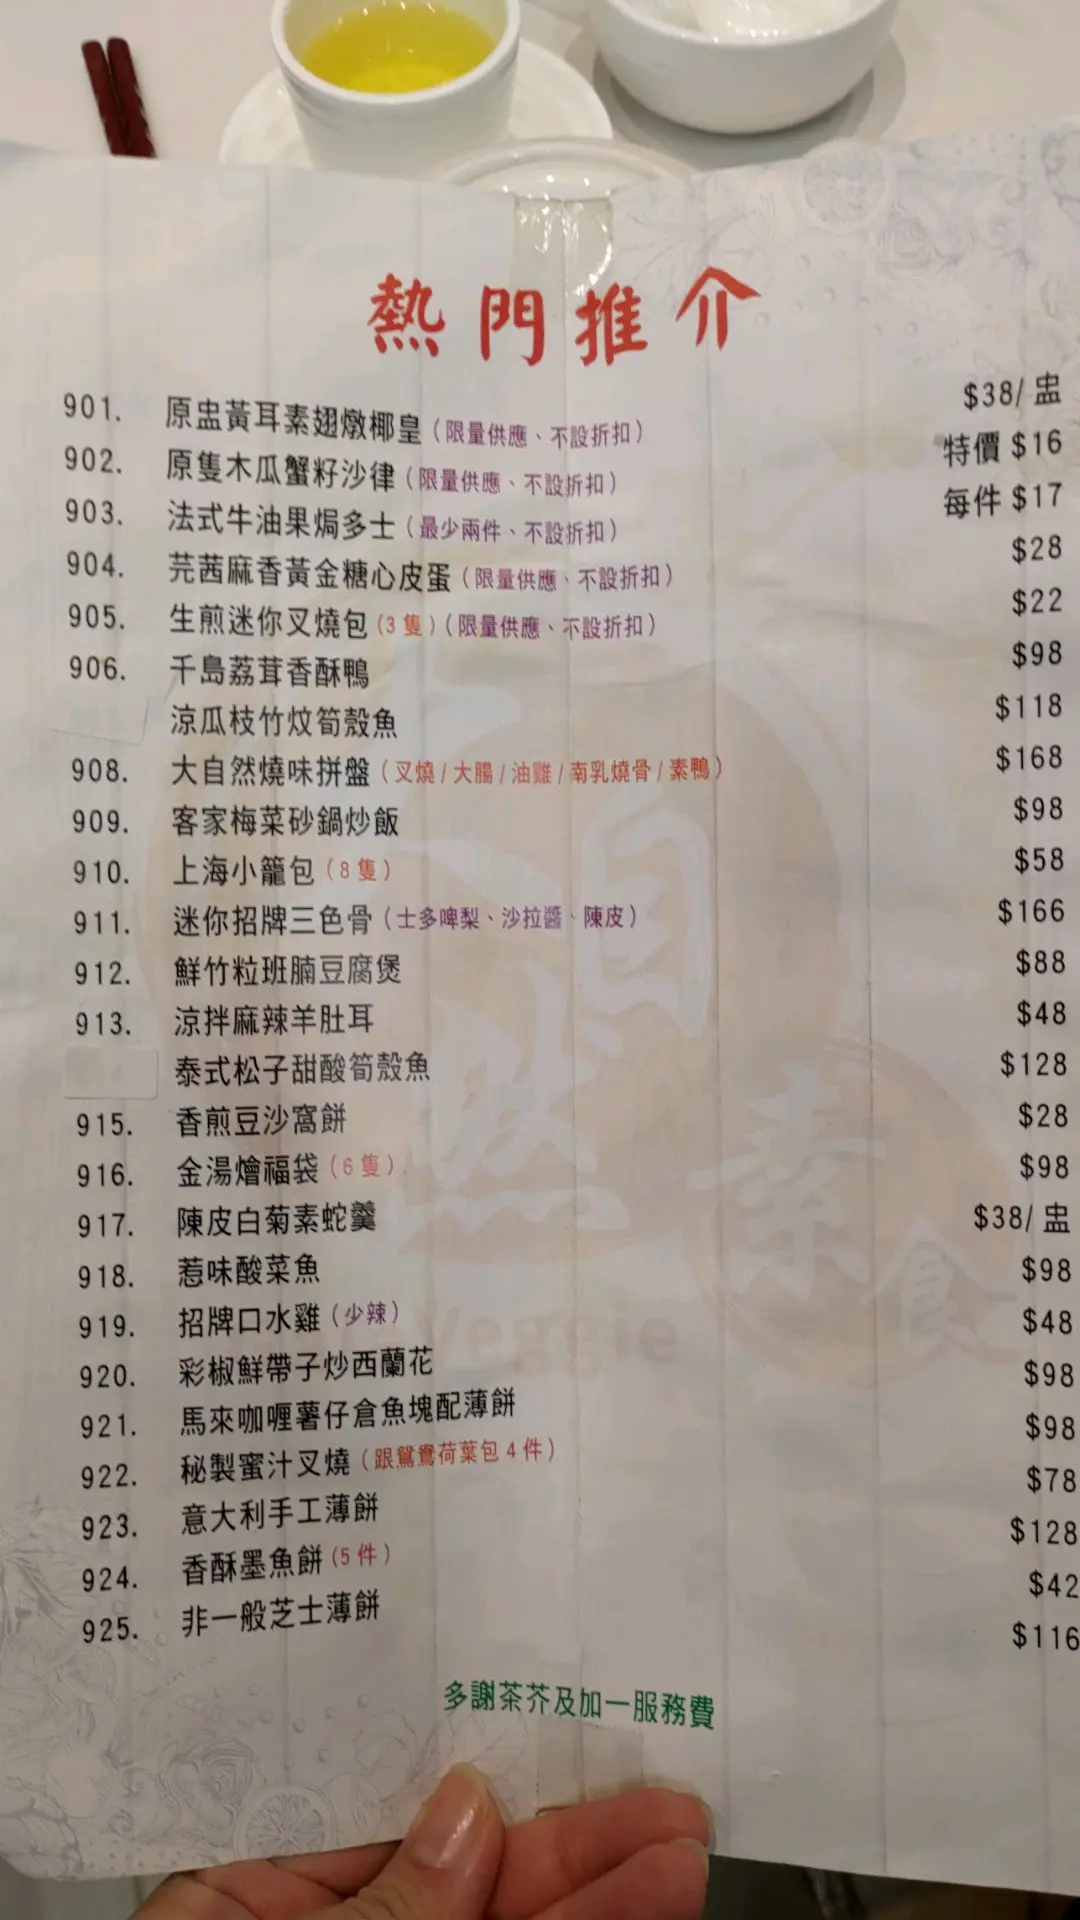 熱門推介
901. 原盅黃耳素翅燉椰皇(限量供應、不設折扣) $38/盅
902. 原隻木瓜蟹籽沙律(限量供應、不設折扣) 特價 $16
903. 法式牛油果焗多士(最少兩件、不設折扣) 每件 $17
904. 芫茜麻香黃金糖心皮蛋(限量供應、不設折扣) $28
905. 生煎迷你叉燒包(3隻)(限量供應、不設折扣) $22
906. 千島荔茸香酥鴨 $98
涼瓜枝竹炆筍殼魚 $118
908. 大自然燒味拼盤(叉燒/大腸/油雞/南乳燒骨/素鴨) $168
909. 客家梅菜砂鍋炒飯 $98
910. 上海小籠包(8隻) $58
911. 迷你招牌三色骨(士多啤梨、沙拉醬、陳皮) $166
912. 鮮竹粒班腩豆腐煲 $88
913. 涼拌麻辣羊肚耳 $48
泰式松子甜酸筍殼魚 $128
915. 香煎豆沙窩餅 $28
916. 金湯燴福袋(6隻) $98
917. 陳皮白菊素蛇羹 $38/盅
918. 惹味酸菜魚 $98
919. 招牌口水雞(少辣) $48
920. 彩椒鮮帶子炒西蘭花 $98
921. 馬來咖喱薯仔倉魚塊配薄餅 $98
922. 秘製蜜汁叉燒(跟鴛鴦荷葉包4件) $78
923. 意大利手工薄餅 $128
924. 香酥墨魚餅(5件) $42
925. 非一般芝士薄餅 $116
大自然素食
Veggie
多謝茶芥及加一服務費